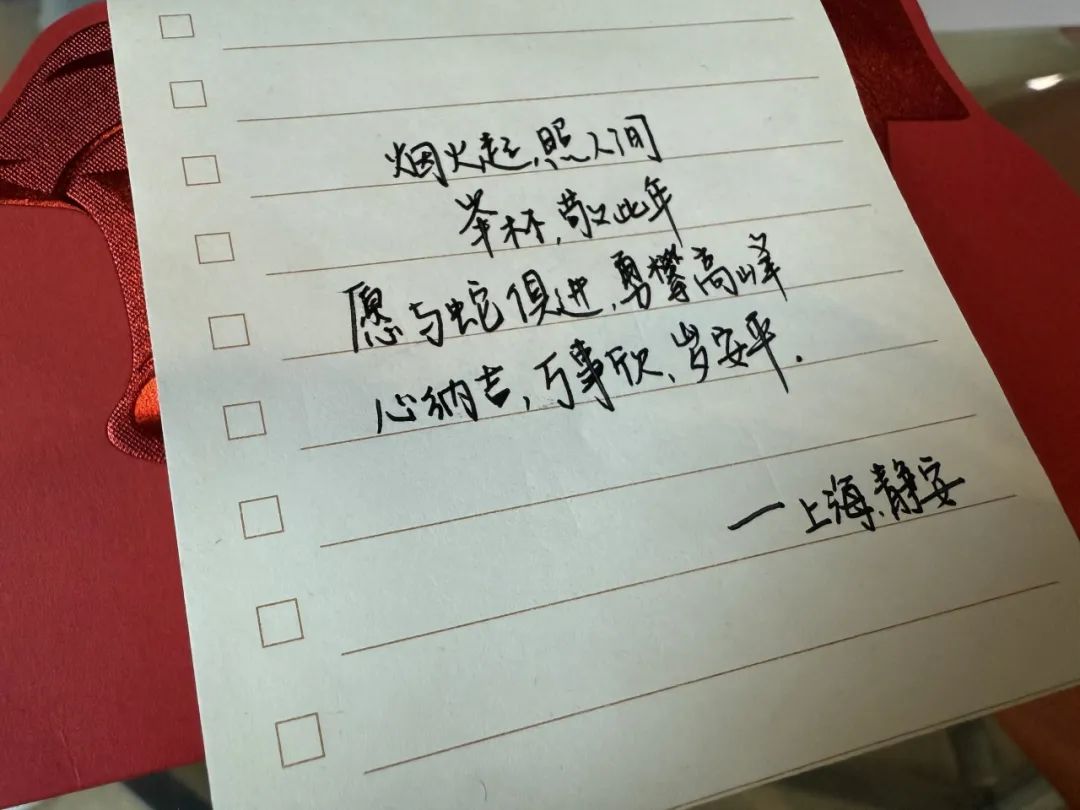 烟火起,照人间
举杯,敬此年
愿与蛇俱进,勇攀高峰
心纳吉,万事欣,岁安平.
—上海,静安